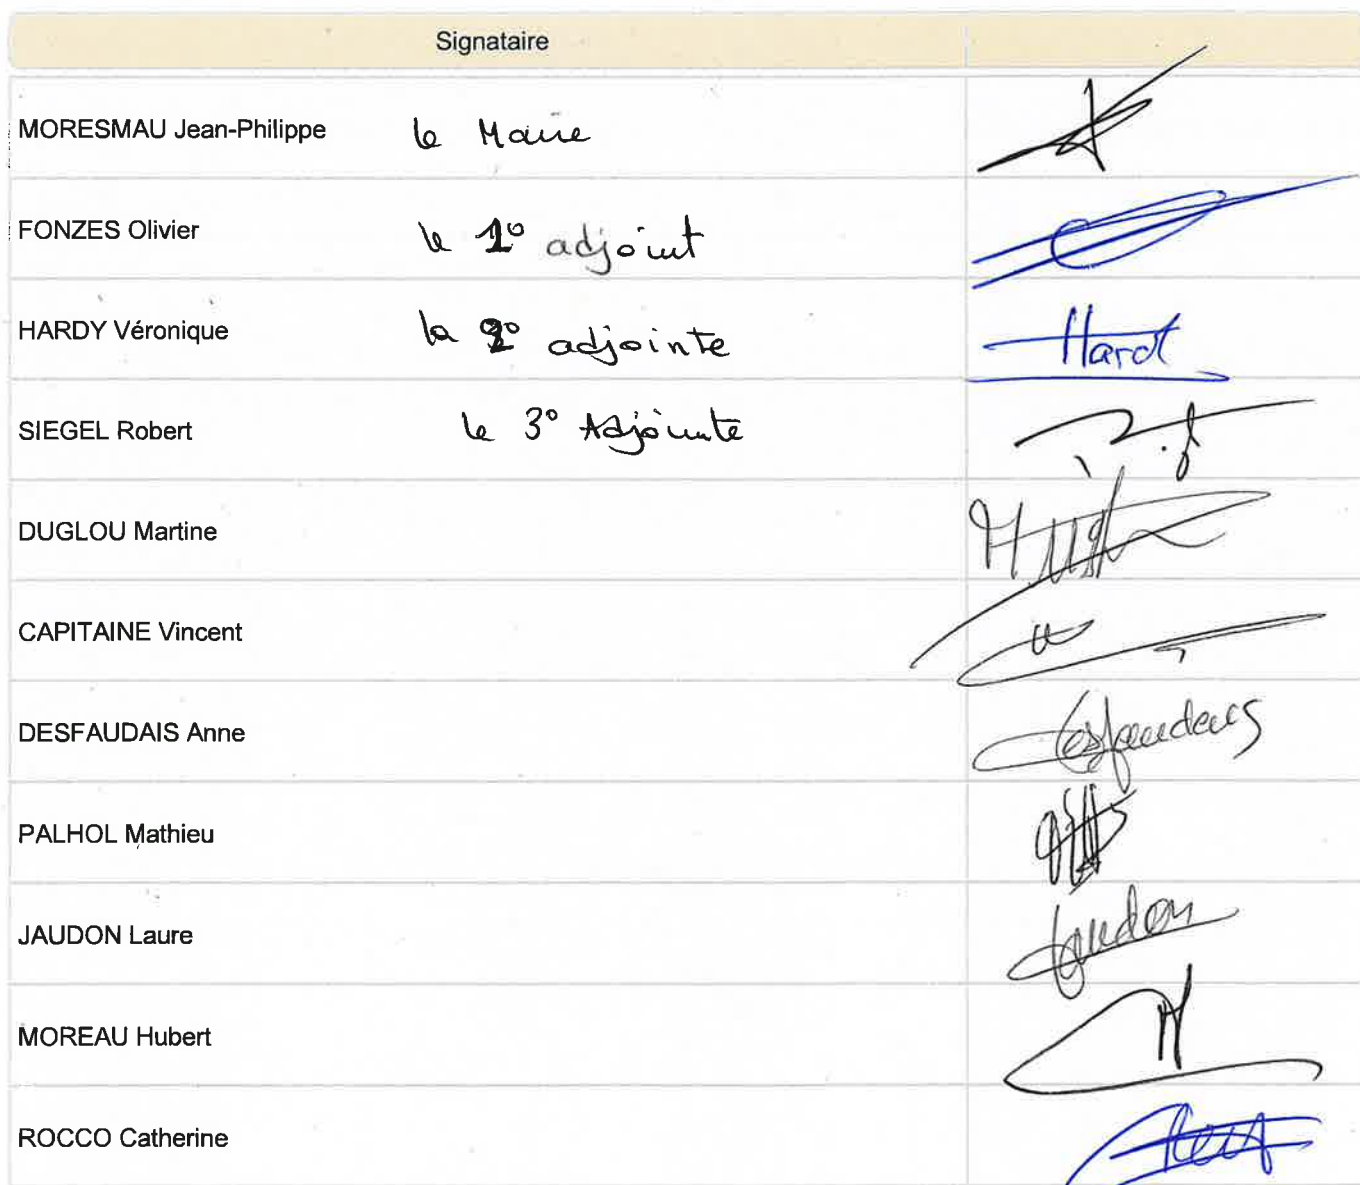 Signataire
MORESMAU Jean-Philippe le Maire
FONZES Olivier le 1° adjoint
HARDY Véronique la 2° adjointe Hard
SIEGEL Robert le 3° Adjointe
DUGLOU Martine
CAPITAINE Vincent
DESFAUDAIS Anne Desfaudais
PALHOL Mathieu
JAUDON Laure Jaudon
MOREAU Hubert
ROCCO Catherine